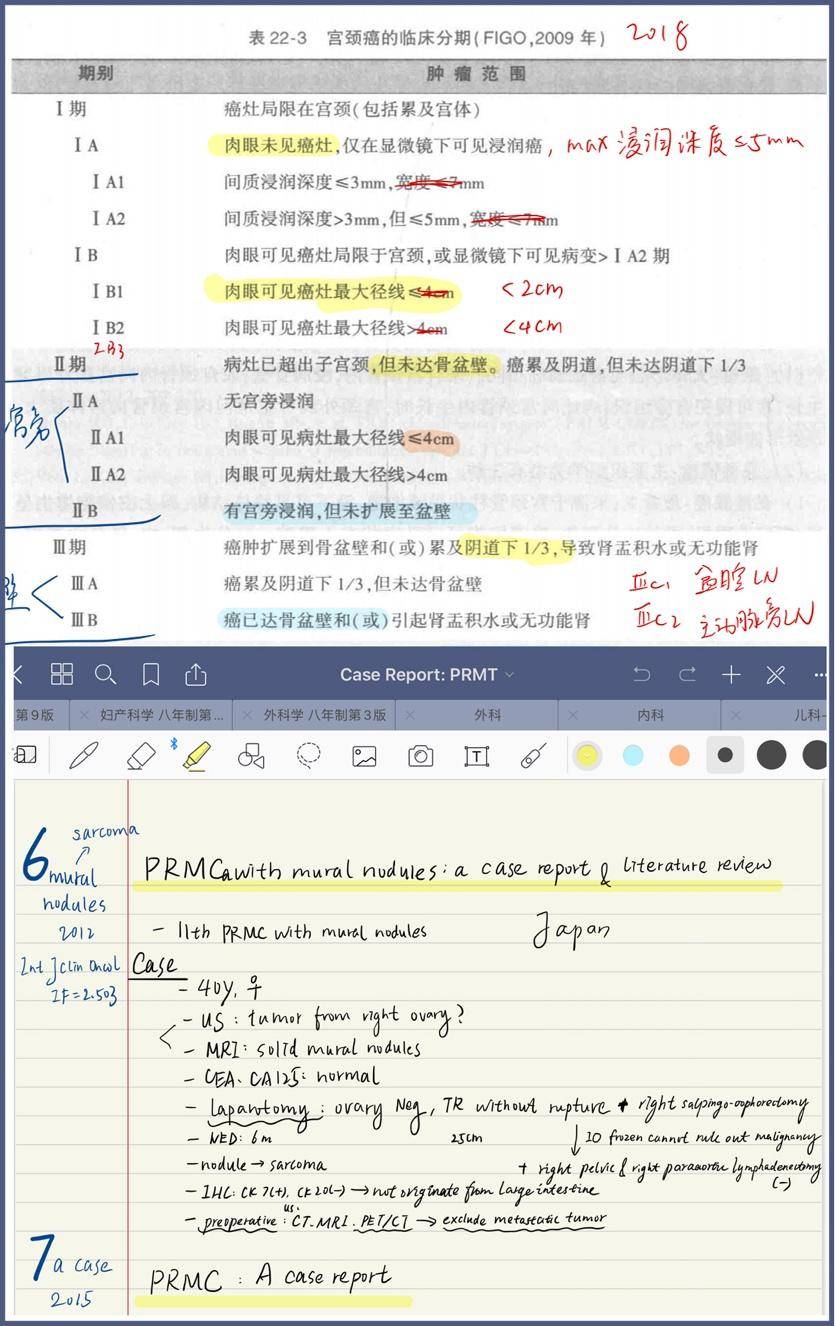 表 22-3 宫颈癌的临床分期(FIGO,2009 年) 2018
期别 肿瘤范围
Ⅰ期 癌灶局限在宫颈(包括累及宫体)
ⅠA 肉眼未见癌灶,仅在显微镜下可见浸润癌, max 浸润深度≤5mm
ⅠA1 间质浸润深度≤3mm,宽度≤7mm
ⅠA2 间质浸润深度>3mm,但≤5mm,宽度≤7mm
ⅠB 肉眼可见癌灶局限于宫颈,或显微镜下可见病变>ⅠA2 期
ⅠB1 肉眼可见癌灶最大径线≤4cm <2cm
ⅠB2 肉眼可见癌灶最大径线>4cm <4cm
IB3
Ⅱ期 病灶已超出子宫颈,但未达骨盆壁。癌累及阴道,但未达阴道下 1/3
ⅡA 无宫旁浸润
宫旁
ⅡA1 肉眼可见病灶最大径线≤4cm
ⅡA2 肉眼可见病灶最大径线>4cm
ⅡB 有宫旁浸润,但未扩展至盆壁
Ⅲ期 癌肿扩展到骨盆壁和(或)累及阴道下 1/3,导致肾盂积水或无功能肾
ⅢA 癌累及阴道下 1/3,但未达骨盆壁 ⅢC1 盆腔LN
壁
ⅢB 癌已达骨盆壁和(或)引起肾盂积水或无功能肾 ⅢC2 主动脉旁LN
Case Report: PRMT
第9版 妇产科学 八年制第... 外科学 八年制第3版 外科 内科 儿科-
sarcoma
6 mural nodules 2012
PRMCa with mural nodules: a case report & literature review
- 11th PRMC with mural nodules Japan
Int J Clin Oncol IF=2.503
Case
- 40y, ♀
- US: tumor from right ovary?
- MRI: solid mural nodules
- CEA、CA125: normal
- laparotomy: ovary Neg, TR without rupture + right salpingo-oophorectomy
- NED: 6m 25cm ↓ IO frozen cannot rule out malignancy
- nodule → sarcoma + right pelvic & right paraaortic lymphadenectomy (-)
- IHC: CK7(+), CK20(-) → not originate from large intestine
- preoperative: US. CT. MRI. PET/CT → exclude metastatic tumor
7 a case 2015
PRMC: A case report